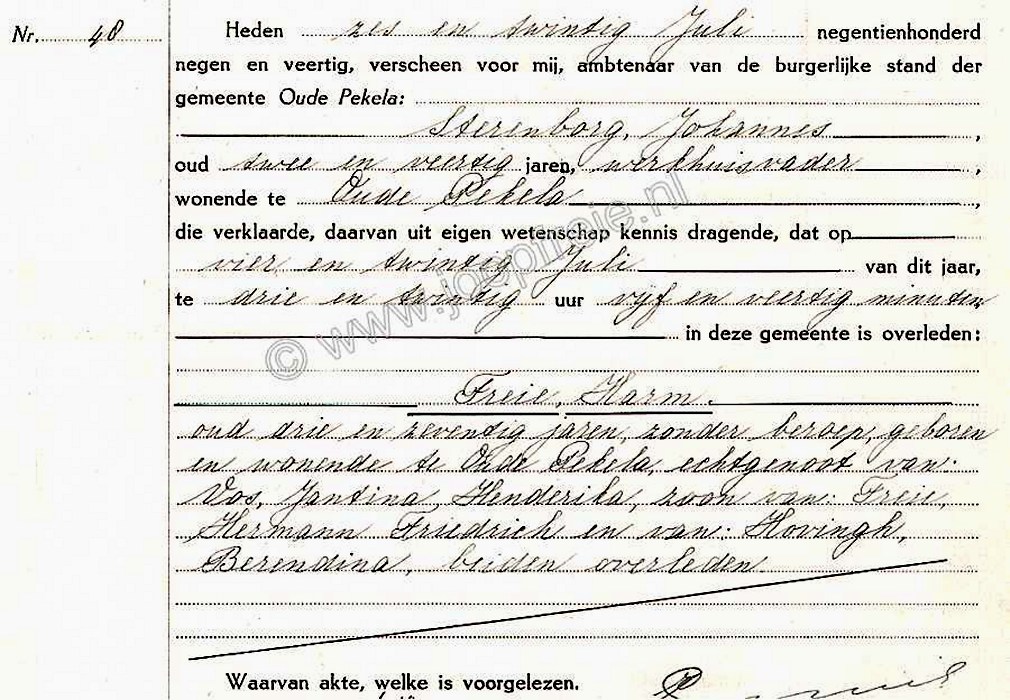 Nr. 48
Heden zes en twintig Juli negentienhonderd
negen en veertig, verscheen voor mij, ambtenaar van de burgerlijke stand der
gemeente Oude Pekela:
Sterenborg, Johannes,
oud twee en veertig jaren, werkhuisvader,
wonende te Oude Pekela,
die verklaarde, daarvan uit eigen wetenschap kennis dragende, dat op
vier en twintig Juli van dit jaar,
te drie en twintig uur vijf en veertig minuten
in deze gemeente is overleden:
Freie, Harm.
oud drie en zeventig jaren, zonder beroep, geboren
en wonende te Oude Pekela, echtgenoot van:
Vos, Jantina Henderika, zoon van: Freie,
Hermann Friedrich en van: Hovingh,
Berendina, beiden overleden
Waarvan akte, welke is voorgelezen.
© www.joopfreie.nl